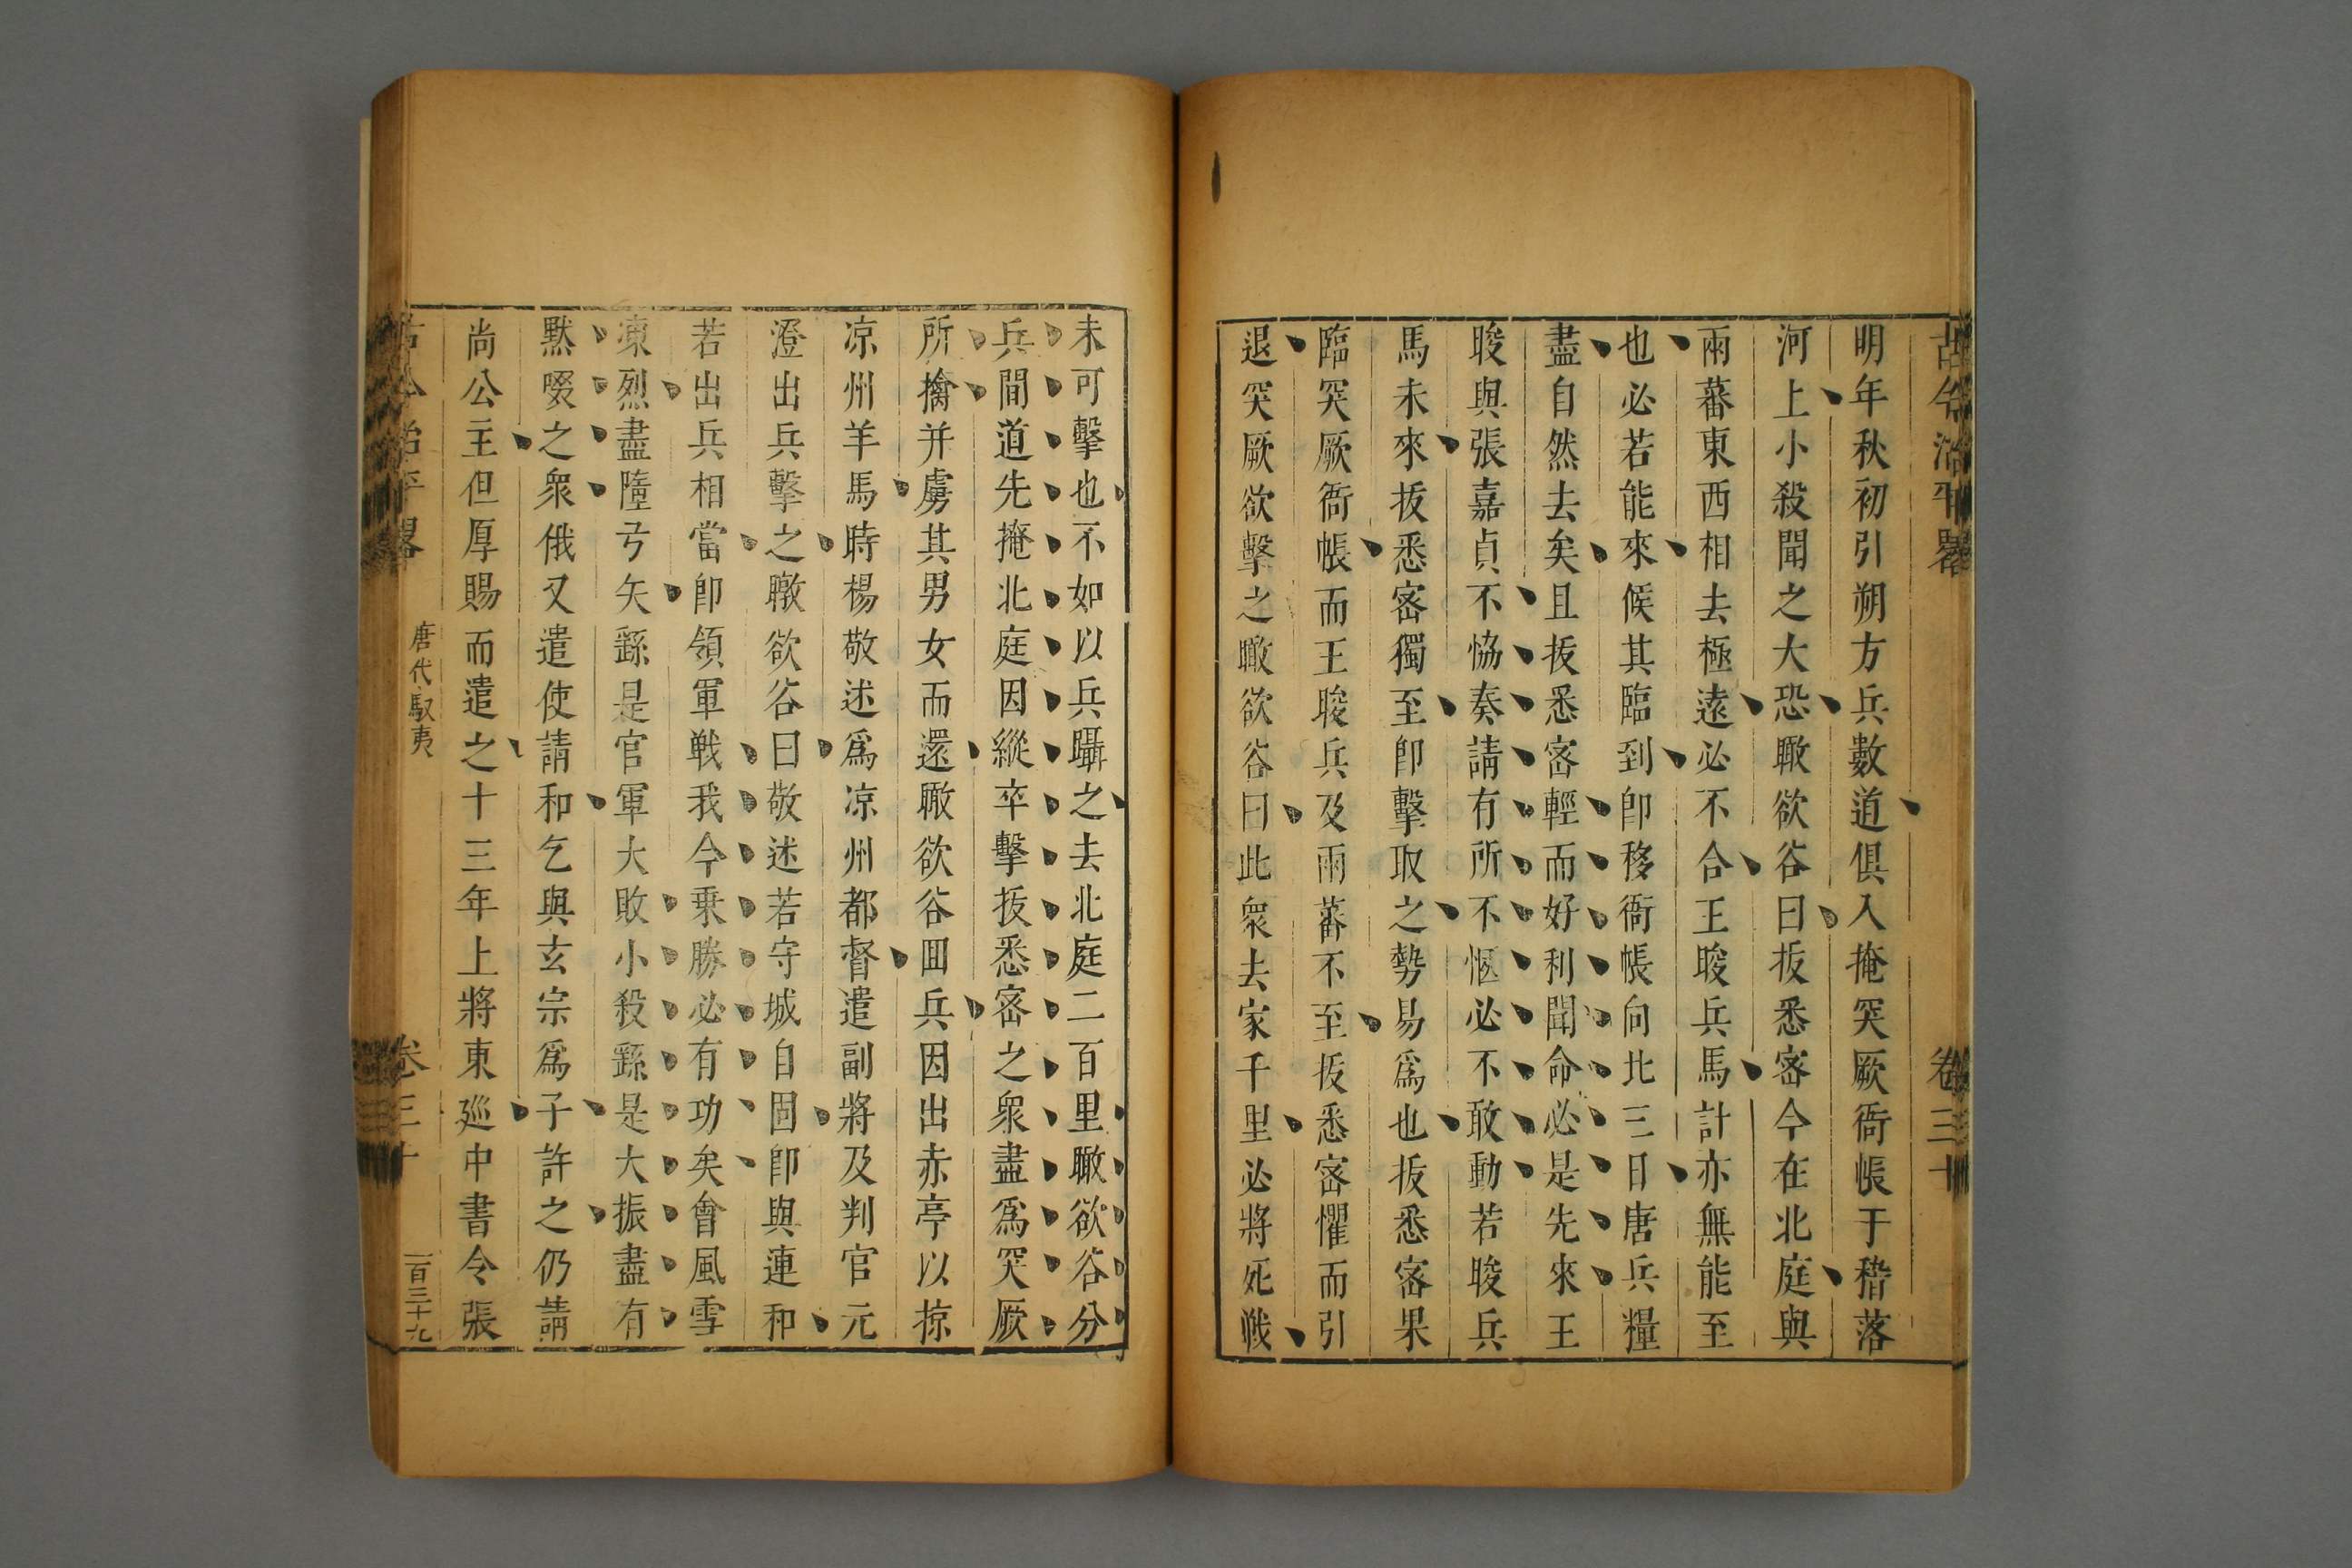 古今治平畧 卷三十
明年秋初引朔方兵數道俱入掩突厥衙帳于稽落
河上小殺聞之大恐暾欲谷曰拔悉密今在北庭與
兩蕃東西相去極遠必不合王晙兵馬計亦無能至
也必若能來候其臨到卽移衙帳向北三日唐兵糧
盡自然去矣且拔悉密輕而好利聞命必是先來王
晙與張嘉貞不協奏請有所不愜必不敢動若晙兵
馬未來拔悉密獨至卽擊取之勢易爲也拔悉密果
臨突厥衙帳而王晙兵及兩蕃不至拔悉密懼而引
退突厥欲擊之暾欲谷曰此衆去家千里必將死戰
未可擊也不如以兵躡之去北庭二百里暾欲谷分
兵間道先掩北庭因縱卒擊拔悉密之衆盡爲突厥
所擒并虜其男女而還暾欲谷囬兵因出赤亭以掠
凉州羊馬時楊敬述爲凉州都督遣副將及判官元
澄出兵擊之暾欲谷曰敬述若守城自固卽與連和
若出兵相當卽領軍戰我今乗勝必有功矣會風雪
凍烈盡墮弓矢繇是官軍大敗小殺繇是大振盡有
默啜之衆俄又遣使請和乞與玄宗爲子許之仍請
尚公主但厚賜而遣之十三年上將東廵中書令張
古今治平畧 唐代馭夷 卷三十 一百三十九